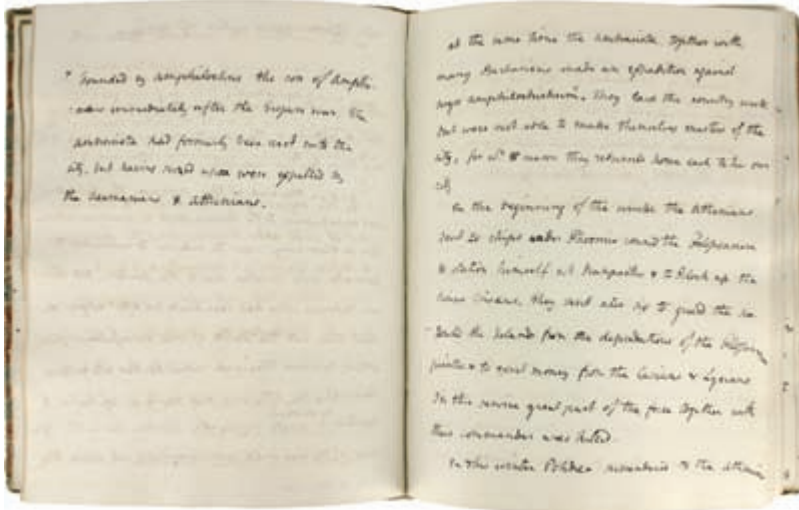 * Founded by Amphilochus the son of Amphi-
-araus immediately after the Trojan war. The
had formerly been cast out the
city, but having were expelled by
the Acarnanians & Athenians.
at the same time the together with
many Barbarians made an expedition against
Argos Amphilochicum. They laid the country waste
but were not able to make themselves masters of the
city, for wh reason they returned home each to his own
city
In the beginning of the winter the Athenians
sent 20 ships under Phormio round the Peloponnese
to station himself at Naupactus & to block up the
they sent also six to guard the
the Islands from the depredations of the
& to money from the Carians & Lycians
In this service great part of the force together with
their commander was killed.
In the winter Potidea to the Athenians